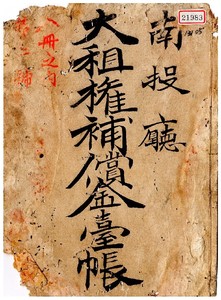 21983
南投廳
大租權補償金臺帳
八冊之内